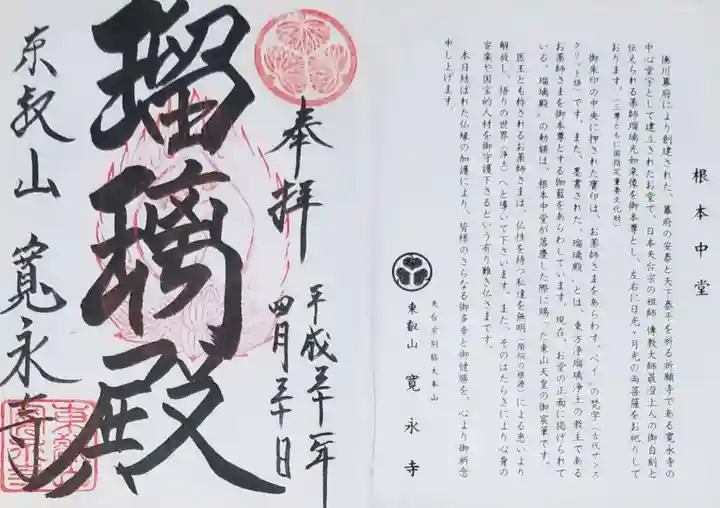 根本中堂
徳川幕府により創建された、幕府の安泰と天下泰平を祈る祈願寺である寛永寺の
中心堂宇として建立されたお堂で、日本天台宗の祖師 傳教大師最澄上人の御自刻と
伝えられる薬師瑠璃光如来像を御本尊とし、左右に日光・月光の両菩薩をお祀りして
おります。(三尊ともに国指定重要文化財)
御朱印の中央に押された寶印は、お薬師さまをあらわす〝ベイ〟の梵字(古代サンス
クリット語)です。また、墨書された〝瑠璃殿〟とは、東方浄瑠璃浄土の教主である
お薬師さまを御本尊とする伽藍をあらわしています。現在、お堂の正面に掲げられて
いる〝瑠璃殿〟の勅額は、根本中堂が落慶した際に賜った東山天皇の御宸筆です。
医王とも称されるお薬師さまは、仏性を持つ私達を無明(煩悩の根源)による患いより
解放し、悟りの世界(浄土)へと導いて下さいます。また、そのはたらきにより心身の
安楽や国宝的人材を御守護下さるという有り難き仏さまです。
本日結ばれた仏縁の加護により、皆様のさらなる御多幸と御健勝を、心より御祈念
申し上げます。
天台宗別格大本山
東叡山 寛永寺
奉拝
平成三十一年
四月三十日
瑠璃殿
東叡山 寛永寺